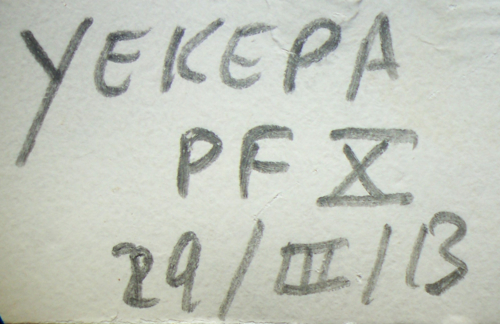 YEKEPA
PF X
29/III/13